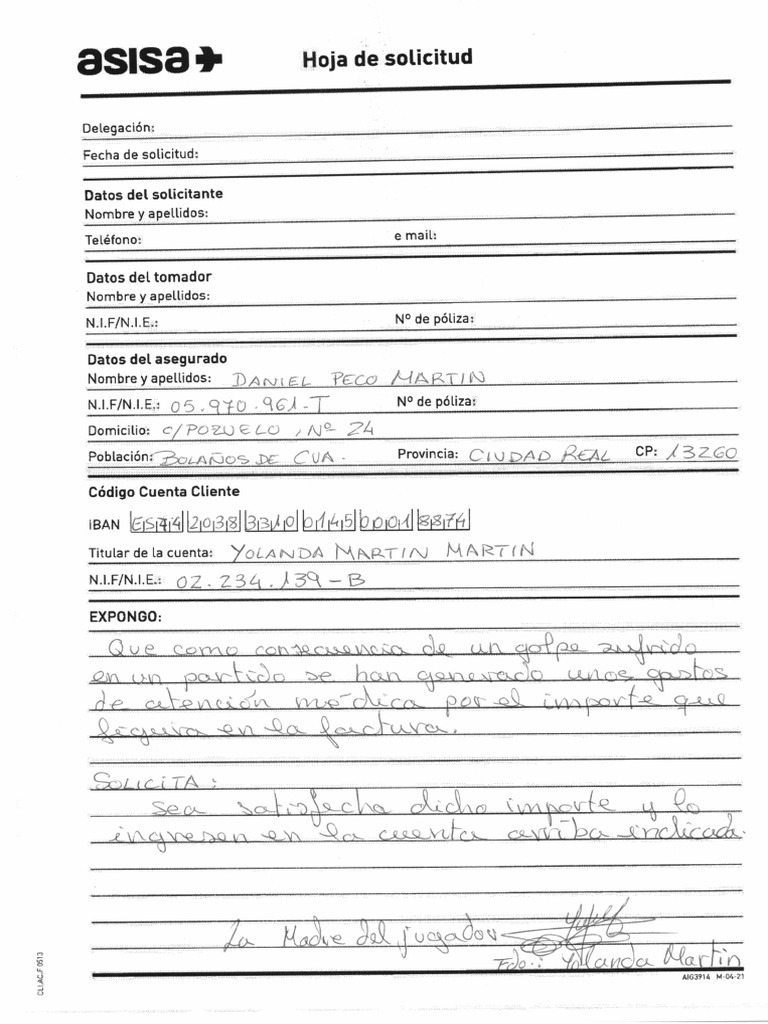 asisa
Hoja de solicitud
Delegación:
Fecha de solicitud:
Datos del solicitante
Nombre y apellidos:
Teléfono: e mail:
Datos del tomador
Nombre y apellidos:
N.I.F/N.I.E.: Nº de póliza:
Datos del asegurado
Nombre y apellidos: DANIEL PECO MARTIN
N.I.F/N.I.E.: 05.970.961-T Nº de póliza:
Domicilio: C/POZUELO, Nº 24
Población: BOLAÑOS DE CVA. Provincia: CIUDAD REAL CP: 13260
Código Cuenta Cliente
IBAN ES44 2038 3310 0145 0001 8874
Titular de la cuenta: YOLANDA MARTIN MARTIN
N.I.F/N.I.E.: 02.234.139-B
EXPONGO:
Que como consecuencia de un golpe sufrido
en un partido se han generado unos gastos
de atención médica por el importe que
figura en la factura.
SOLICITA:
Sea satisfecha dicho importe y lo
ingresen en la cuenta arriba indicada.
La Madre del jugador
Fdo.: Yolanda Martin
AIG3914 M-04-21
CLI.AC.F 0513